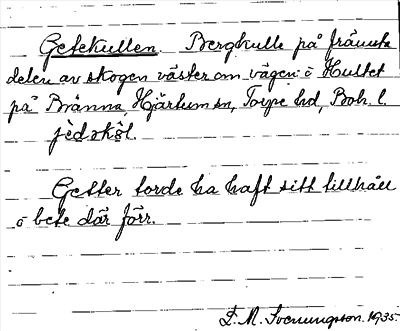 Getekullen. Bergkulle på främsta
delen av skogen väster om vägen i Hultet
på Bränna, Hjärtum sn, Torpe hd, Boh. l.
jèdəkəl.
Getter torde ha haft sitt tillhåll
o bete där förr.
L. M. Svenungsson. 1935.